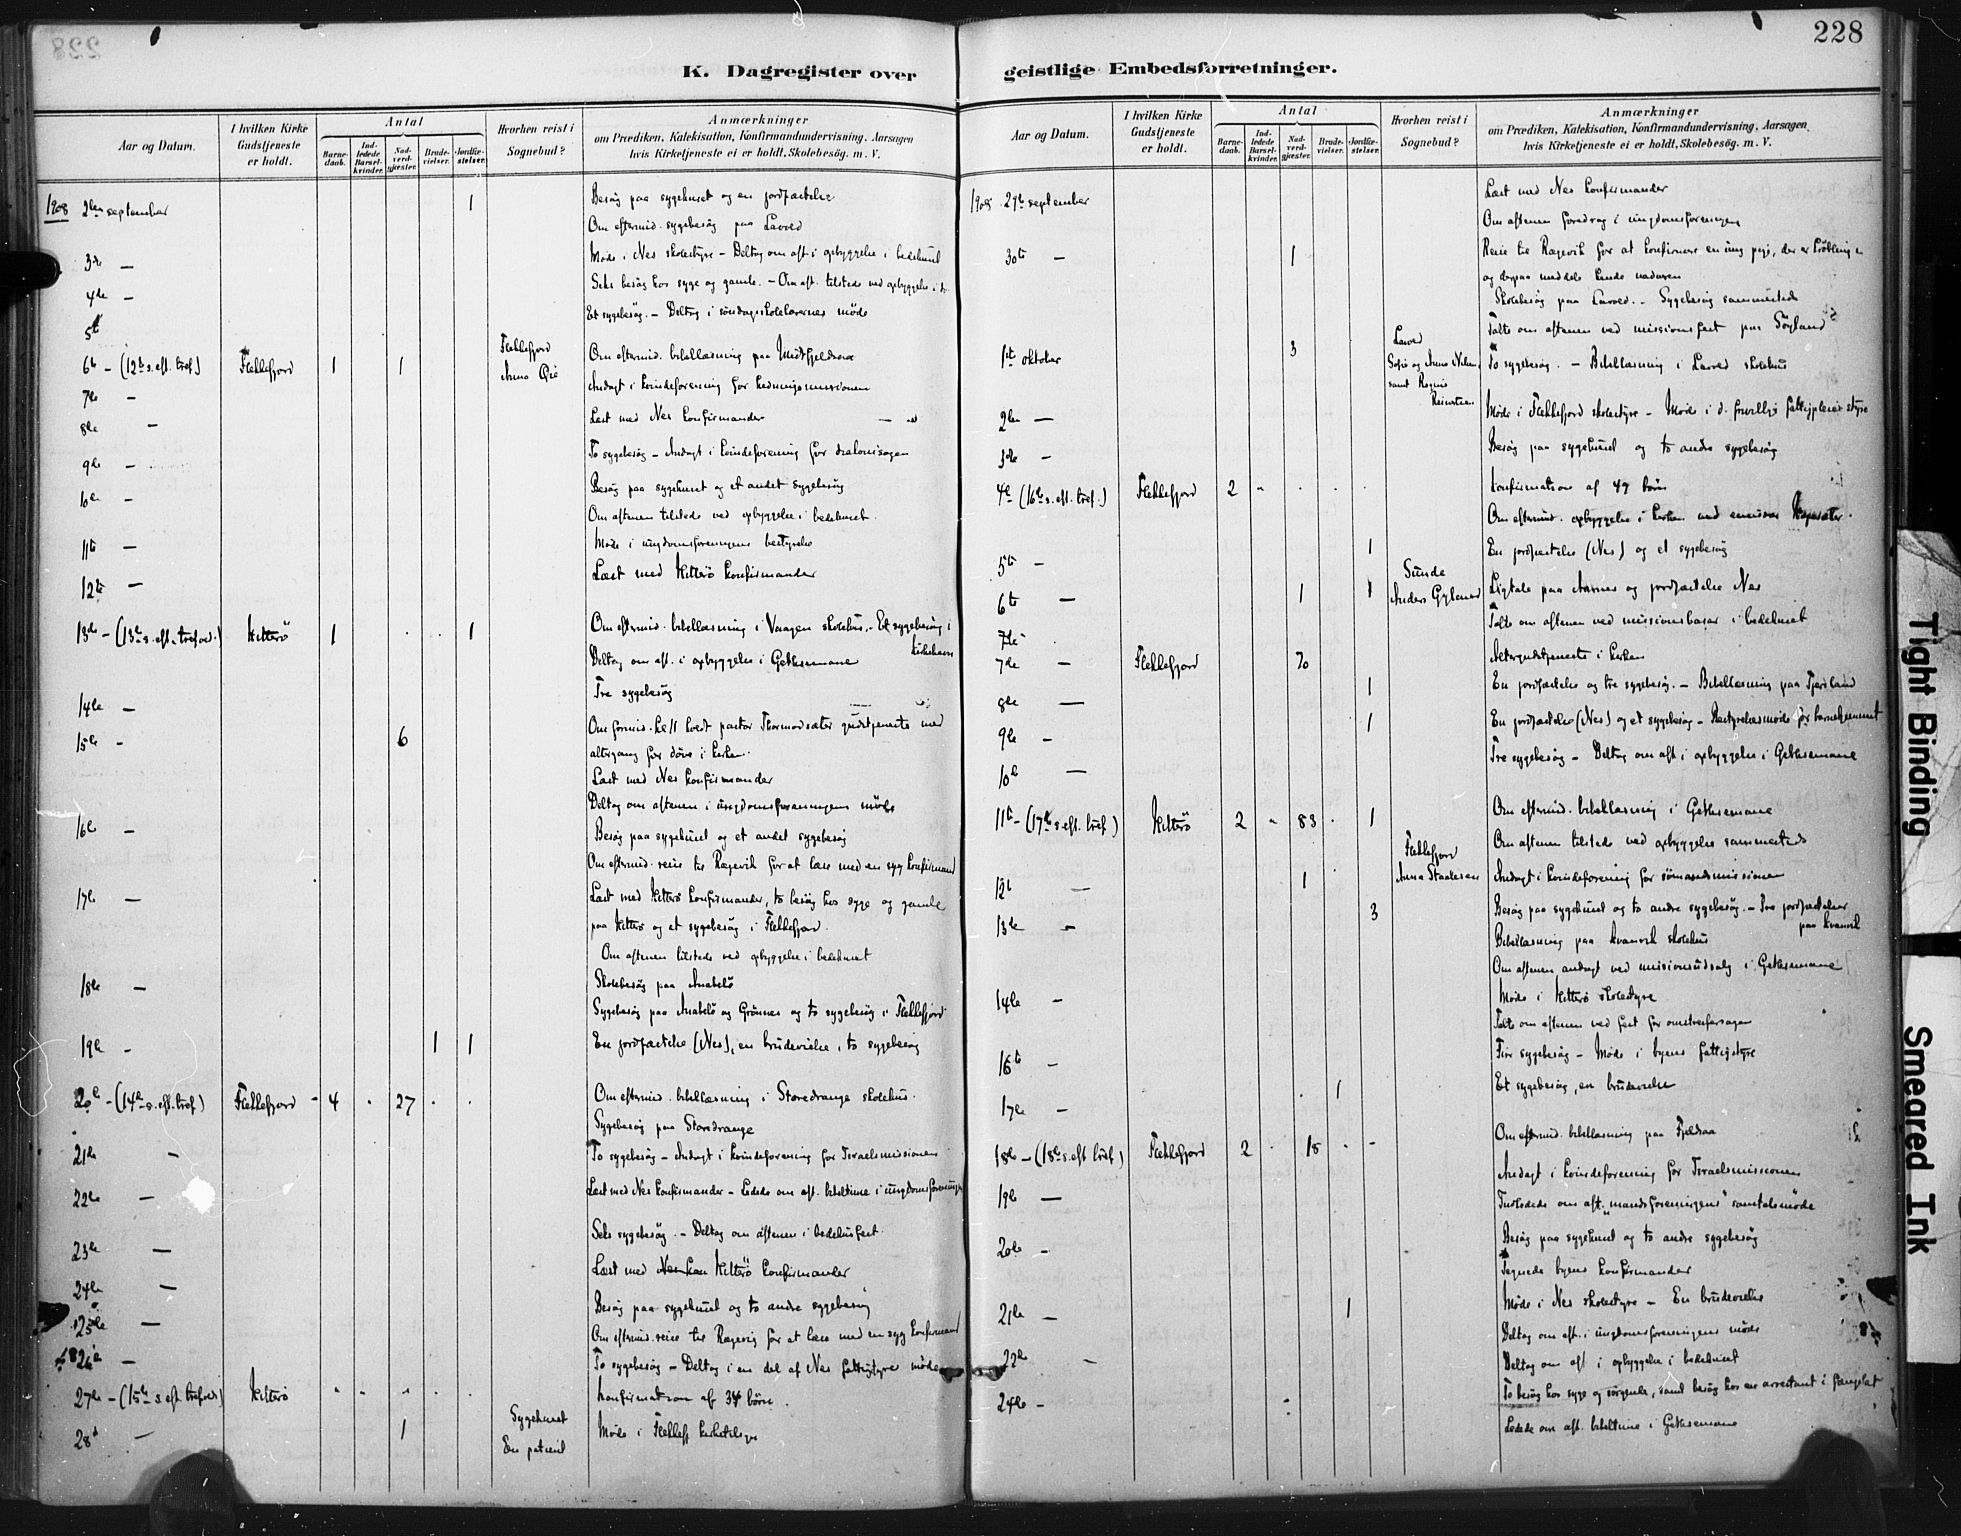 228
K. Dagregister over geistlige Embedsforretninger.
Aar og Datum.
I hvilken Kirke Gudstjeneste er holdt.
Antal
Barne-daab.
Ind-ledede Barsel-kvinder.
Nad-verd-gjæster.
Brude-vielser.
Jordfæ-stelser.
Hvorhen reist i Sognebud?
Anmærkninger
om Prædiken, Katekisation, Konfirmandundervisning, Aarsagen
hvis Kirketjeneste ei er holdt, Skolebesög. m. V.
1908 2den september 1 Besög paa sygehuset og en jordfæstelse
Om eftermid. sygebesög paa Lavold
3de — Möde i Nes skolestyre – Deltog om aft. i opbyggelse i bedehuset
4de — Seks besög hos syge og gamle. – Om aft. tilstede ved opbyggelse i
5te Et sygebesög. – Deltog i söndagsskolelærernes möde
6te – (12te s. eft. tref.) Flekkefjord 1 1 Flekkefjord Anna Om eftermid. bibellæsning paa Midtfjeldsaa
7de — Andagt i kvindeforening for hedningemissionen
8de — Læst med Nes konfirmander
9de — To sygebesög – Andagt i kvindeforening for diakonisagen
10de — Besög paa sygehuset og et andet sygebesög
Om aftenen tilstede ved opbyggelse i bedehuset.
11te — Möde i ungdomsforeningens bestyrelse
12te — Læst med Hitterö konfirmander
13de – (13de s. eft. trefold.) Hitterö 1 1 Om eftermid. bibellæsning i Vaagen skolehus. – Et sygebesög i Kirkehavn
Deltog om aft. i opbyggelse i Gethsemane
14de — Tre sygebesög
15de - 6 Om formid. kl 11 holdt pastor Thormodsæter gudstjeneste med
altergang for döve i kirken.
Læst med Nes konfirmander
Deltog om aftenen i ungdomsforeningens möde
16de — Besög paa sygehuset og et andet sygebesög
Om eftermid. reise til Ragevik for at læse med en syg konfirmand
17de — Læst med Hitterö konfirmander, to besög hos syge og gamle
paa Hitterö og et sygebesög i Flekkefjord.
Om aftenen tilstede ved opbyggelse i bedehuset
18de — Skolebesög paa Anabelö
Sygebesög paa Anabelö og Grönnes og to sygebesög i Flekkefjord
19de - 1 1 En jordfæstelse (Nes), en brudevielse, to sygebesög
20de – (14de s. eft. tref.) Flekkefjord 4 27 Om eftermid. bibellæsning i Storedrange skolehus.
Sygebesög paa Storedrange
21de — To sygebesög – Andagt i kvindeforening for Israelsmissionen
22de — Læst med Nes konfirmander – Ledede om aft. bibeltime i ungdomsforeningen
23de — Seks sygebesög. – Deltog om aftenen i bedehusfest.
24de — Læst med Hitterö konfirmander
25de — Besög paa sygehuset og to andre sygebesög
Om eftermid. reise til Ragevig for at læse med en syg konfirmand
26de — To sygebesög – Deltog i en del af Nes fattigstyres möde
27de – (15de s. eft. trefold.) Hitterö Konfirmation af 34 börn.
28de — 1 Sygehuset En patient Möde i Flekkefj. kirketilsyn
Aar og Datum.
I hvilken Kirke Gudstjeneste er holdt.
Antal
Barne-daab.
Ind-ledede Barsel-kvinder.
Nad-verd-gjæster.
Brude-vielser.
Jordfæ-stelser.
Hvorhen reist i Sognebud?
Anmærkninger
om Prædiken, Katekisation, Konfirmandundervisning, Aarsagen
hvis Kirketjeneste ei er holdt, Skolebesög. m. V.
1908 29de september Læst med Nes konfirmander
Om aftenen foredrag i ungdomsforeningen
30te — 1 Reise til Ragevik for at konfirmere en ung pige, der er kröbling
og derpaa meddele hende nadveren
Skolebesög paa Lavold. – Sygebesög sammesteds
Talte om aftenen ved missionsfest paa Söyland
1ste oktober 3 Lavold Sofie og Anna samt To sygebesög. – Bibellæsning i Lavold skolehus
2den — Möde i Flekkefjord skolestyre – Möde i d. frivillige fattigpleies styre
3de — Besög paa sygehuset og to andre sygebesög
4de (16de s. eft. tref.) Flekkefjord 2 Konfirmation af 47 börn
Om eftermid. opbyggelse i kirken med emissær
5te — 1 En jordfæstelse (Nes) og et sygebesög
6te — 1 1 Sunde Anders Ligtale paa Aasnes og jordfæstelse Nes
Talte om aftenen ved missionsbasar i bedehuset
7de — Flekkefjord 70 Altergudstjeneste i kirken
8de — 1 En jordfæstelse og tre sygebesög. – Bibellæsning paa Tjørsland
9de — 1 En jordfæstelse (Nes) og et sygebesög – Bestyrelsesmöde for barnehjemmet
10de — Tre sygebesög – Deltog om aft. i opbyggelse i Gethsemane
11te – (17de s. eft. tref.) Hitterö 2 83 1 Om eftermid. bibellæsning i Gethsemane
Om aftenen tilstede ved opbyggelse sammesteds
12te — 1 Flekkefjord Anna Staalesen Andagt i kvindeforening for sömandsmissionen
13de — 3 Besög paa sygehuset og to andre sygebesög. – Tre jordfæstelser paa Kvanvik
Bibellæsning paa Kvanvik skolehus
Om aftenen andagt ved missionsudsalg i Gethsemane
14de — Möde i Hitterö skolestyre
Talte om aftenen ved fest for
16te — Fire sygebesög – Möde i byens fattigstyre
17de — 1 Et sygebesög, en brudevielse
18de – (18de s. eft. tref.) Flekkefjord 2 18 Om eftermid. bibellæsning paa Fjeldsaa
19de — Andagt i kvindeforening for Israelsmissionen
Indledede om aft. „mandsforeningens" samtalemöde
20de — Besög paa sygehuset og to andre sygebesög
Tegnede byens konfirmander
21de — 1 Möde i Nes skolestyre – En brudevielse
Deltog om aft. i ungdomsforeningens möde
22de - Deltog om aft. i opbyggelse i bedehuset
24de – To besög hos syge og sörgende, samt besög hos en arrestant i fængslet
Ledede om aft. bibeltime i Gethsemane
Tight Binding
Smeared Ink